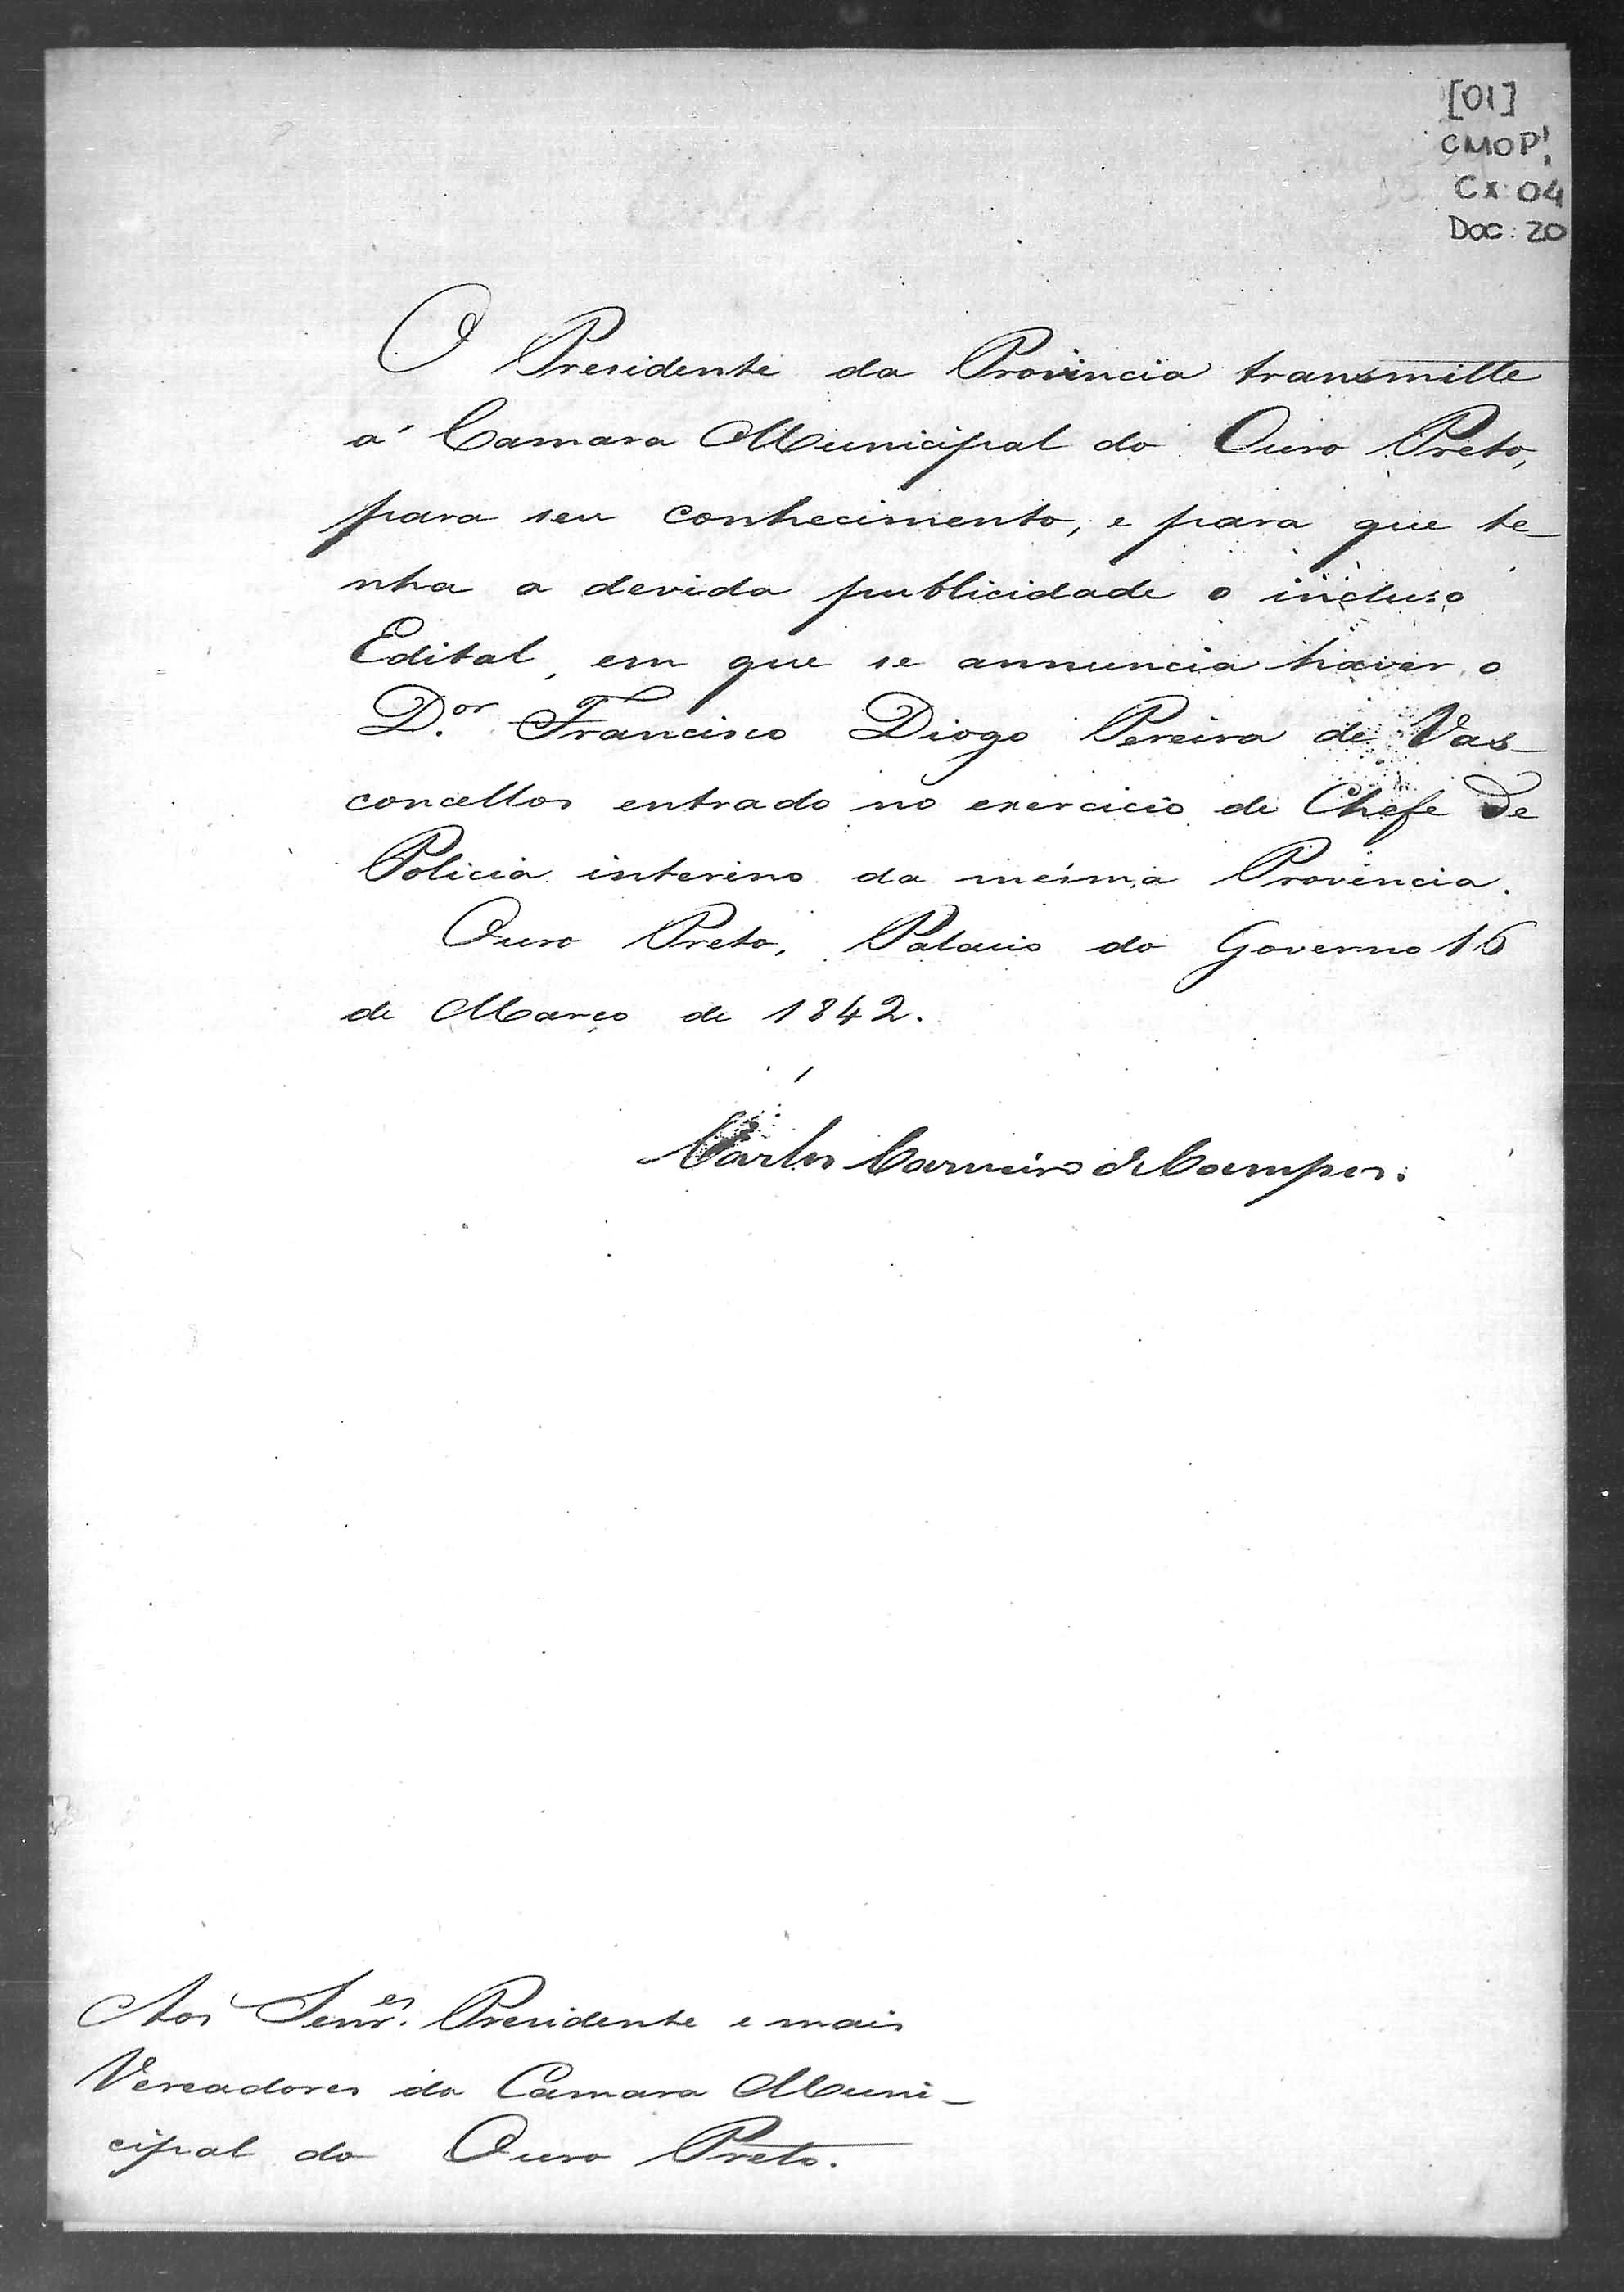 [01]
CMOP
Cx: 04
Doc: 20
O Presidente da Provincia transmitte
á Camara Municipal do Ouro Preto,
para seu conhecimento, e para que te-
nha a devida publicidade o incluso
Edital, em que se annuncia haver o
D.or Francisco Diogo Pereira de Vas-
concellos entrado no exercicio de Chefe de
Policia interino da mesma Provincia.
Ouro Preto, Palacio do Governo 16
de Março de 1842.
Carlos Carneiro de Campos.
Aos Senr.es Presidente e mais
Vereadores da Camara Muni-
cipal do Ouro Preto.